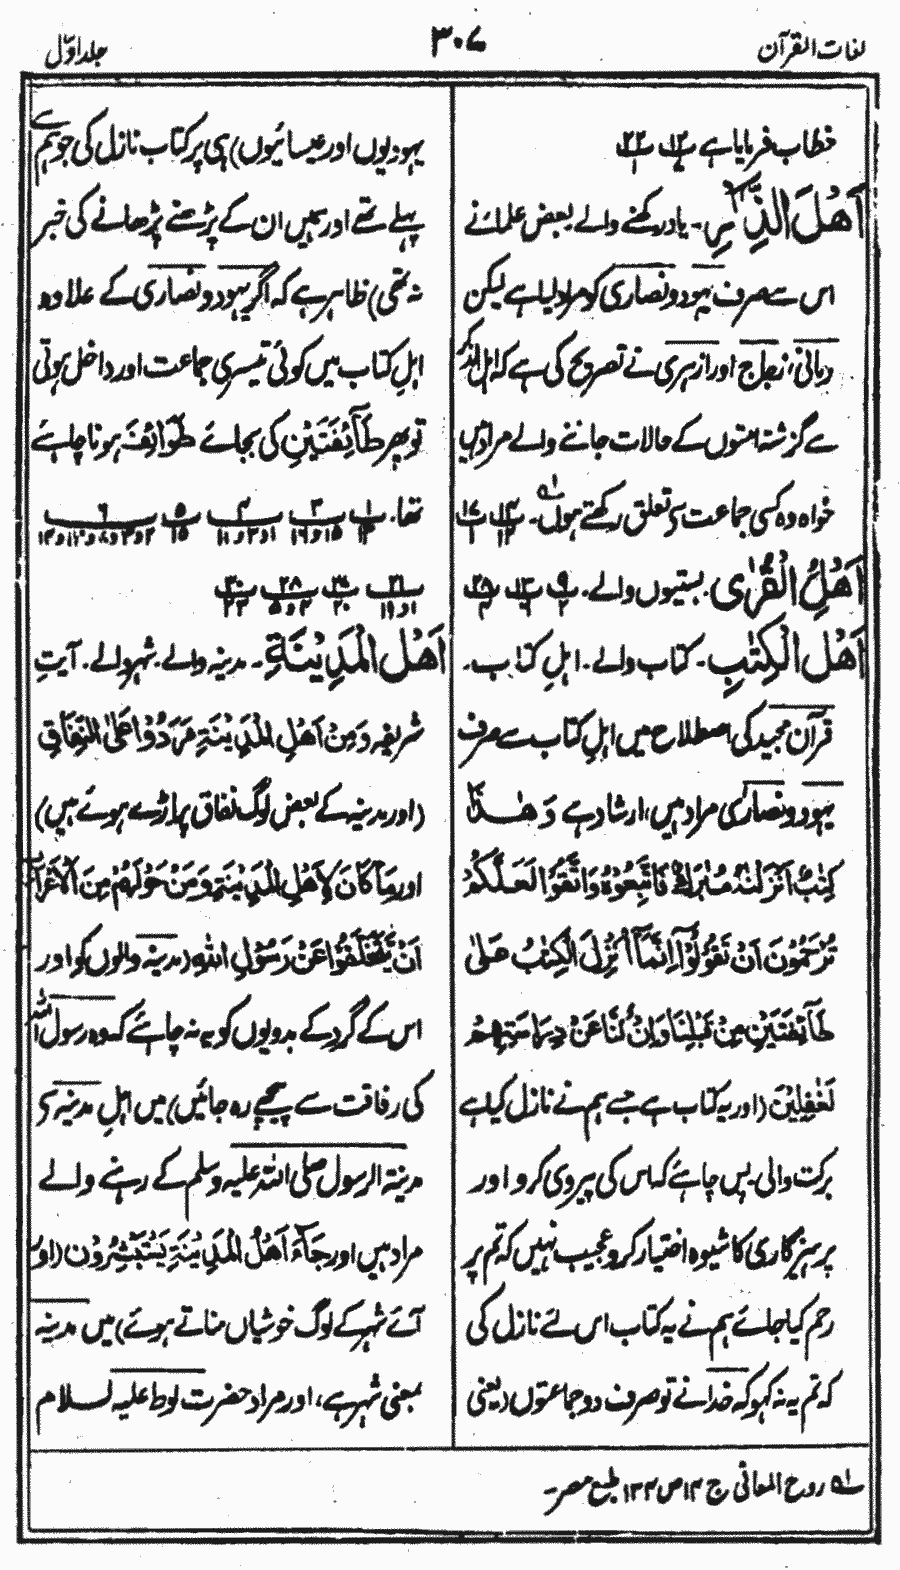 لغات القرآن
۳۰۷
جلد اوّل
خطاب فرمایا ہے ۱۲ ۲۲
اَھْلَ الذِّکْرِ۔ یاد رکھنے والے۔ بعض علماء نے
اس سے صرف یہود و نصاریٰ کو مراد لیا ہے لیکن
رمانی، زجاج اور ازہری نے تصریح کی ہے کہ اہل الذکر
سے گزشتہ امتوں کے حالات جاننے والے مراد ہیں
خواہ وہ کسی جماعت سے تعلق رکھتے ہوں۔ ۱۴ ۱۷
اَھْلُ الْقُرٰی۔ بستیوں والے۔ ۹ ۱۳ ۲۸
اَھْلُ الْکِتٰبِ۔ کتاب والے۔ اہلِ کتاب۔
قرآن مجید کی اصطلاح میں اہلِ کتاب سے صرف
یہود و نصاریٰ مراد ہیں، ارشاد ہے وَھٰذَا
کِتٰبٌ اَنْزَلْنٰہُ مُبٰرَکٌ فَاتَّبِعُوْہُ وَاتَّقُوْا لَعَلَّکُمْ
تُرْحَمُوْنَ اَنْ تَقُوْلُوْٓا اِنَّمَآ اُنْزِلَ الْکِتٰبُ عَلٰی
طَآئِفَتَیْنِ مِنْ قَبْلِنَا وَاِنْ کُنَّا عَنْ دِرَاسَتِھِمْ
لَغٰفِلِیْنَ (اور یہ کتاب ہے جسے ہم نے نازل کیا ہے
برکت والی۔ پس چاہئے کہ اس کی پیروی کرو اور
پرہیزگاری کا شیوہ اختیار کرو عجیب نہیں کہ تم پر
رحم کیا جائے ہم نے یہ کتاب اس لئے نازل کی
کہ تم یہ نہ کہو کہ خدا نے تو صرف دو جماعتوں (یعنی
یہودیوں اور عیسائیوں) ہی پر کتاب نازل کی جو ہم سے
پہلے تھے اور ہمیں ان کے پڑھنے پڑھانے کی خبر
نہ تھی) ظاہر ہے کہ اگر یہود و نصاریٰ کے علاوہ
اہلِ کتاب میں کوئی تیسری جماعت اور داخل ہوتی
تو پھر طَآئِفَتَیْنِ کی بجائے طَوَائِفَ ہونا چاہئے
تھا۔ ۱ ۳ ۴ ۵ ۶
۲۱ ۲۴ ۲۸ ۳۰
اَھْلُ الْمَدِیْنَۃِ۔ مدینہ والے۔ شہر والے۔ آیتِ
شریفہ وَمِنْ اَھْلِ الْمَدِیْنَۃِ مَرَدُوْا عَلَی النِّفَاقِ
(اور مدینہ کے بعض لوگ نفاق پر اڑے ہوئے ہیں)
اور مَا کَانَ لِاَھْلِ الْمَدِیْنَۃِ وَمَنْ حَوْلَھُمْ مِنَ الْاَعْرَابِ
اَنْ یَّتَخَلَّفُوْا عَنْ رَسُوْلِ اللّٰہِ (مدینہ والوں کو اور
اس کے گرد کے بدویوں کو یہ نہ چاہئے کہ وہ رسول اللہ
کی رفاقت سے پیچھے رہ جائیں) میں اہلِ مدینہ سے
مدینۃ الرسول صلی اللہ علیہ وسلم کے رہنے والے
مراد ہیں اور جَآءَ اَھْلُ الْمَدِیْنَۃِ یَسْتَبْشِرُوْنَ (اور
آئے شہر کے لوگ خوشیاں مناتے ہوئے) میں مدینہ
بمعنی شہر ہے، اور مراد حضرت لوط علیہ السلام
۱ روح المعانی ج ۱۴ ص ۱۳۴ طبع مصر۔